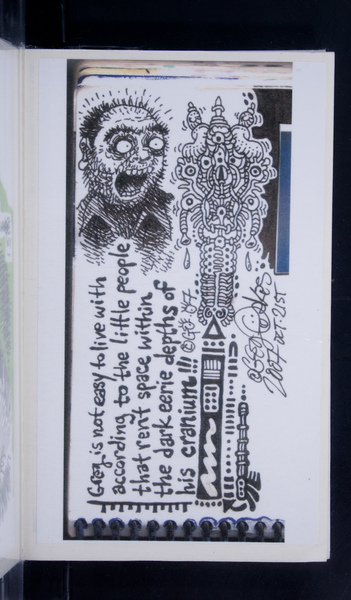 Greg is not easy to live with
according to the little people
that rent space within
the dark eerie depths of
his cranium!!!
2007 OCT. 21ST